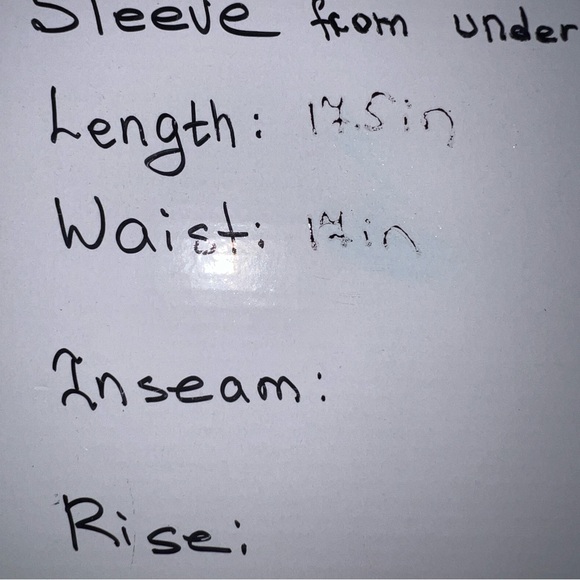 Sleeve from under
Length: 17.5in
Waist: in
Inseam:
Rise: